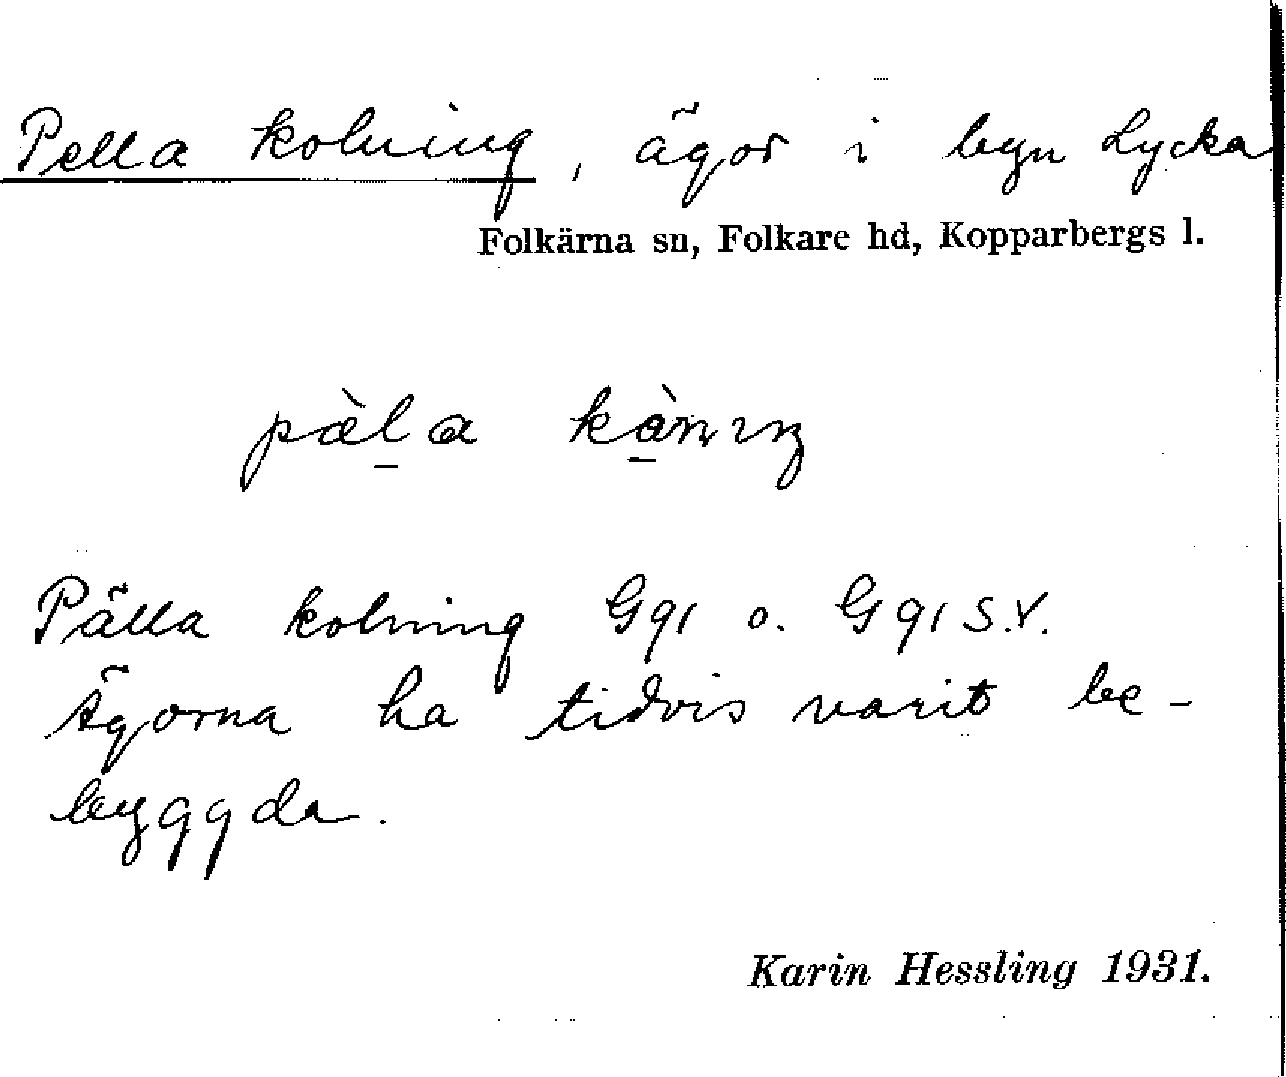 Pella kolning, ägor i byn Lycka
Folkärna sn, Folkare hd, Kopparbergs l.
pàl̠a kàn̠ıŋ
Pälla kolning Gg1 o. Gg1 S.V.
Ägorna ha tidvis varit be-
byggda.
Karin Hessling 1931.